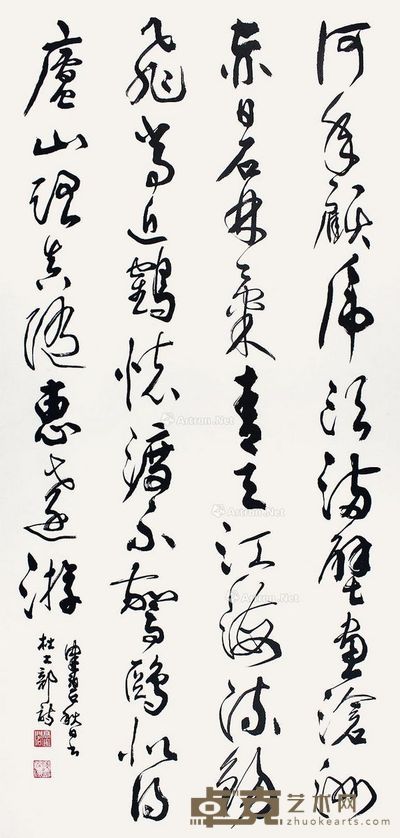 何年顧虎頭滿壁畫滄洲
赤日石林氣青天江海流錫
飛常近鶴杯渡不驚鷗似得
廬山路真隨惠遠游
杜工部詩
秋日書
Artron.Net
Artron.Net
Artron.Net
Artron.Net
卓克艺术网
www.zhuokearts.com